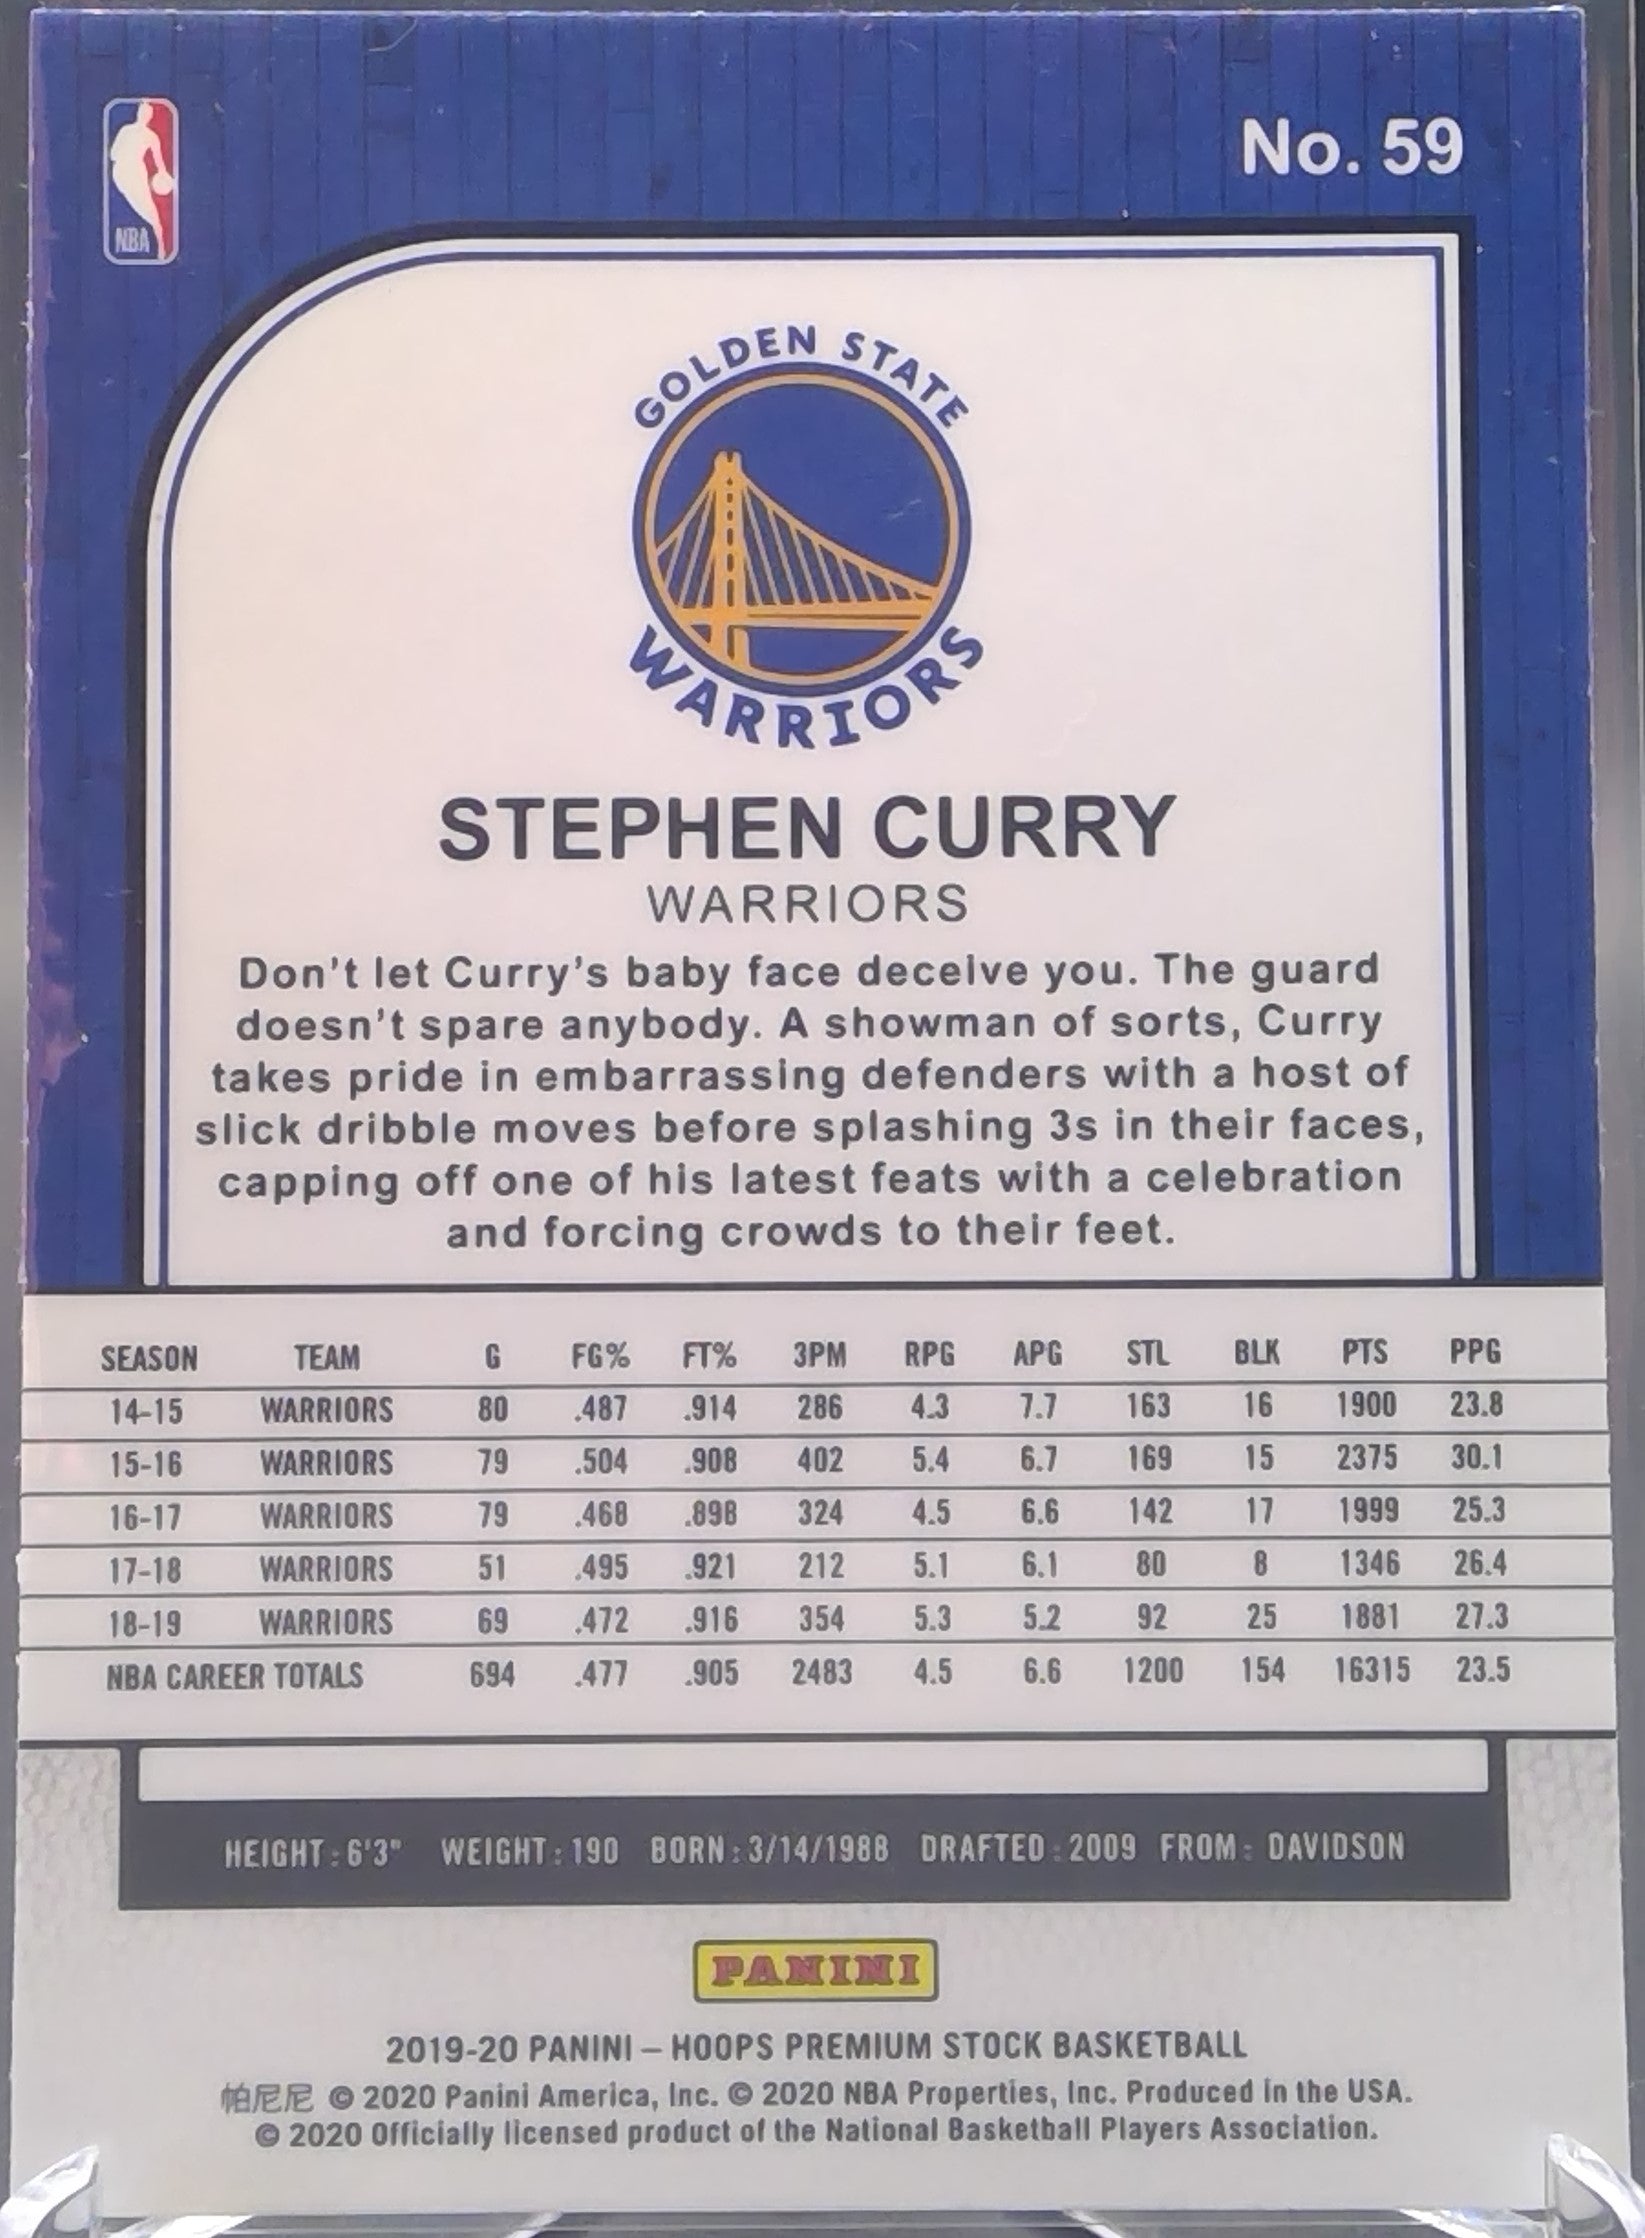 NBA
No. 59
GOLDEN STATE
WARRIORS
STEPHEN CURRY
WARRIORS
Don't let Curry's baby face deceive you. The guard
doesn't spare anybody. A showman of sorts, Curry
takes pride in embarrassing defenders with a host of
slick dribble moves before splashing 3s in their faces,
capping off one of his latest feats with a celebration
and forcing crowds to their feet.
SEASON TEAM G FG% FT% 3PM RPG APG STL BLK PTS PPG
14-15 WARRIORS 80 .487 .914 286 4.3 7.7 163 16 1900 23.8
15-16 WARRIORS 79 .504 .908 402 5.4 6.7 169 15 2375 30.1
16-17 WARRIORS 79 .468 .898 324 4.5 6.6 142 17 1999 25.3
17-18 WARRIORS 51 .495 .921 212 5.1 6.1 80 8 1346 26.4
18-19 WARRIORS 69 .472 .916 354 5.3 5.2 92 25 1881 27.3
NBA CAREER TOTALS 694 .477 .905 2483 4.5 6.6 1200 154 16315 23.5
HEIGHT: 6'3" WEIGHT: 190 BORN: 3/14/1988 DRAFTED: 2009 FROM: DAVIDSON
PANINI
2019-20 PANINI – HOOPS PREMIUM STOCK BASKETBALL
帕尼尼 © 2020 Panini America, Inc. © 2020 NBA Properties, Inc. Produced in the USA.
© 2020 Officially licensed product of the National Basketball Players Association.